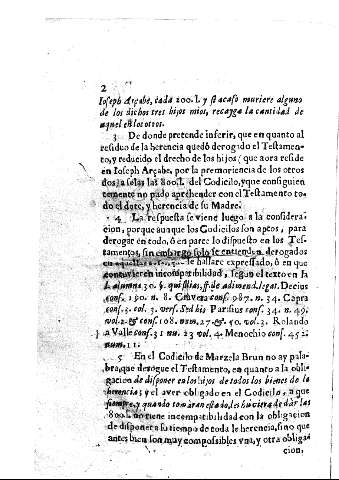 2
Ioseph Arçabe, cada 200.l. y si acaso muriere alguno
de los dichos tres hijos mios, recayga la cantidad de
aquel en los otros.
3 De donde pretende inferir, que en quanto al
residuo de la herencia quedò derogado el Testamen-
to, y reducido el drecho de los hijos (que aora reside
en Ioseph Arçabe, por la premoriencia de los otros
dos) a solas las 800.l. del Codicilo, y que consiguien
temente no pudo aprehender con el Testamento to
do el dote, y herencia de su Madre.
4 La respuesta se viene luego a la considera-
cion, porque aunque los Codicilos son aptos, para
derogar en todo, ò en parte lo dispuesto en los Tes-
tamentos, sin embargo solo se entienden derogados
en aquellas se hallare expressado, ò en que
contuvieren incompatibilidad, segun el texto en la
l. alumna 30. §. qui filias, ff. de adimend. legat. Decius
cons. 190. n. 8. Cravera cons. 987. n. 34. Capra
cons. 3. col. 3. vers. Sed his Parisius cons. 34. n. 49.
vol. 2. & cons. 108. num. 27. & 50. vol. 3. Rolando
a Valle cons. 31 nu. 23 vol. 4. Menochio cons. 452.
num. 11.
5 En el Codicilo de Marzela Brun no ay pala-
bra, que derogue el Testamento, en quanto a la obli-
gacion de disponer en los hijos de todos los bienes de la
herencia; y el aver obligado en el Codicilo, a que
siempre, y quando tomaran estado, les huviera de dàr las
800.l. no tiene incompatibilidad con la obligacion
de disponer a su tiempo de toda le herencia, sino que
antes bien son muy compossibles vna, y otra obliga
cion,